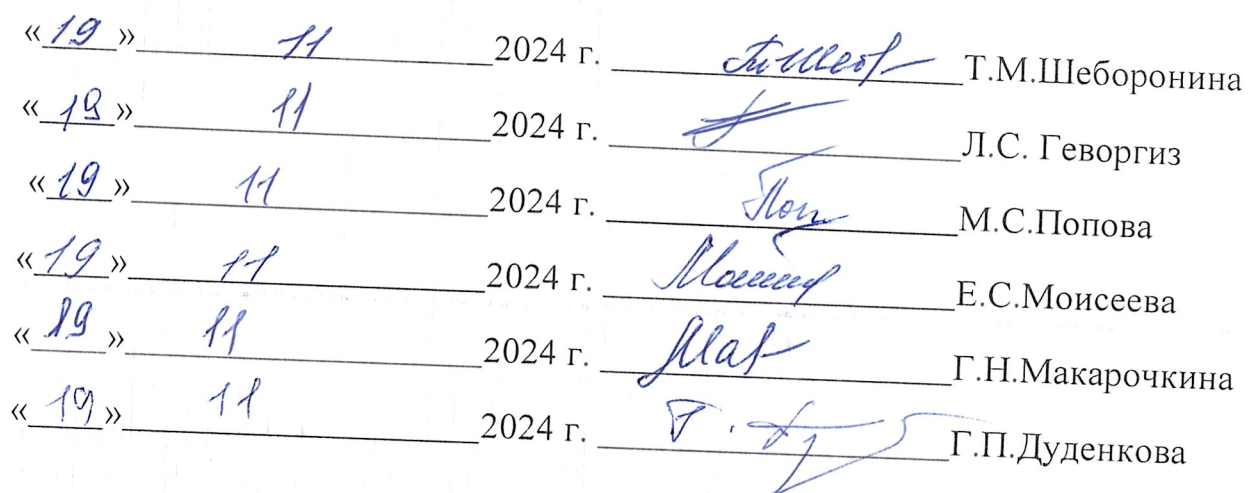 «19» 11 2024 г. Т.М.Шеборонина
«19» 11 2024 г. Л.С. Геворгиз
«19» 11 2024 г. Поп М.С.Попова
«19» 11 2024 г. Е.С.Моисеева
«19» 11 2024 г. Г.Н.Макарочкина
«19» 11 2024 г. Г.П.Дуденкова